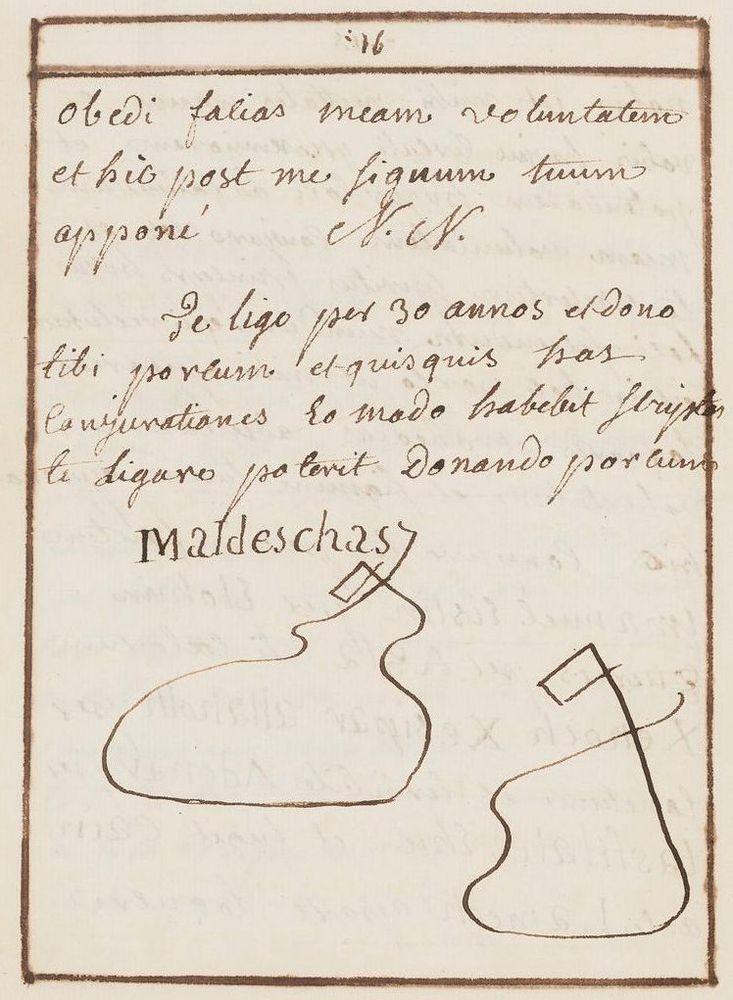 :16
obedi facias meam voluntatem
et hic post me signum tuum
apponé N. N.
Te ligo per 30 annos et dono
tibi porcum et quisquis has
Conjurationes Eo modo habebit scriptas
te Ligare poterit Donando porcum
Maldeschas